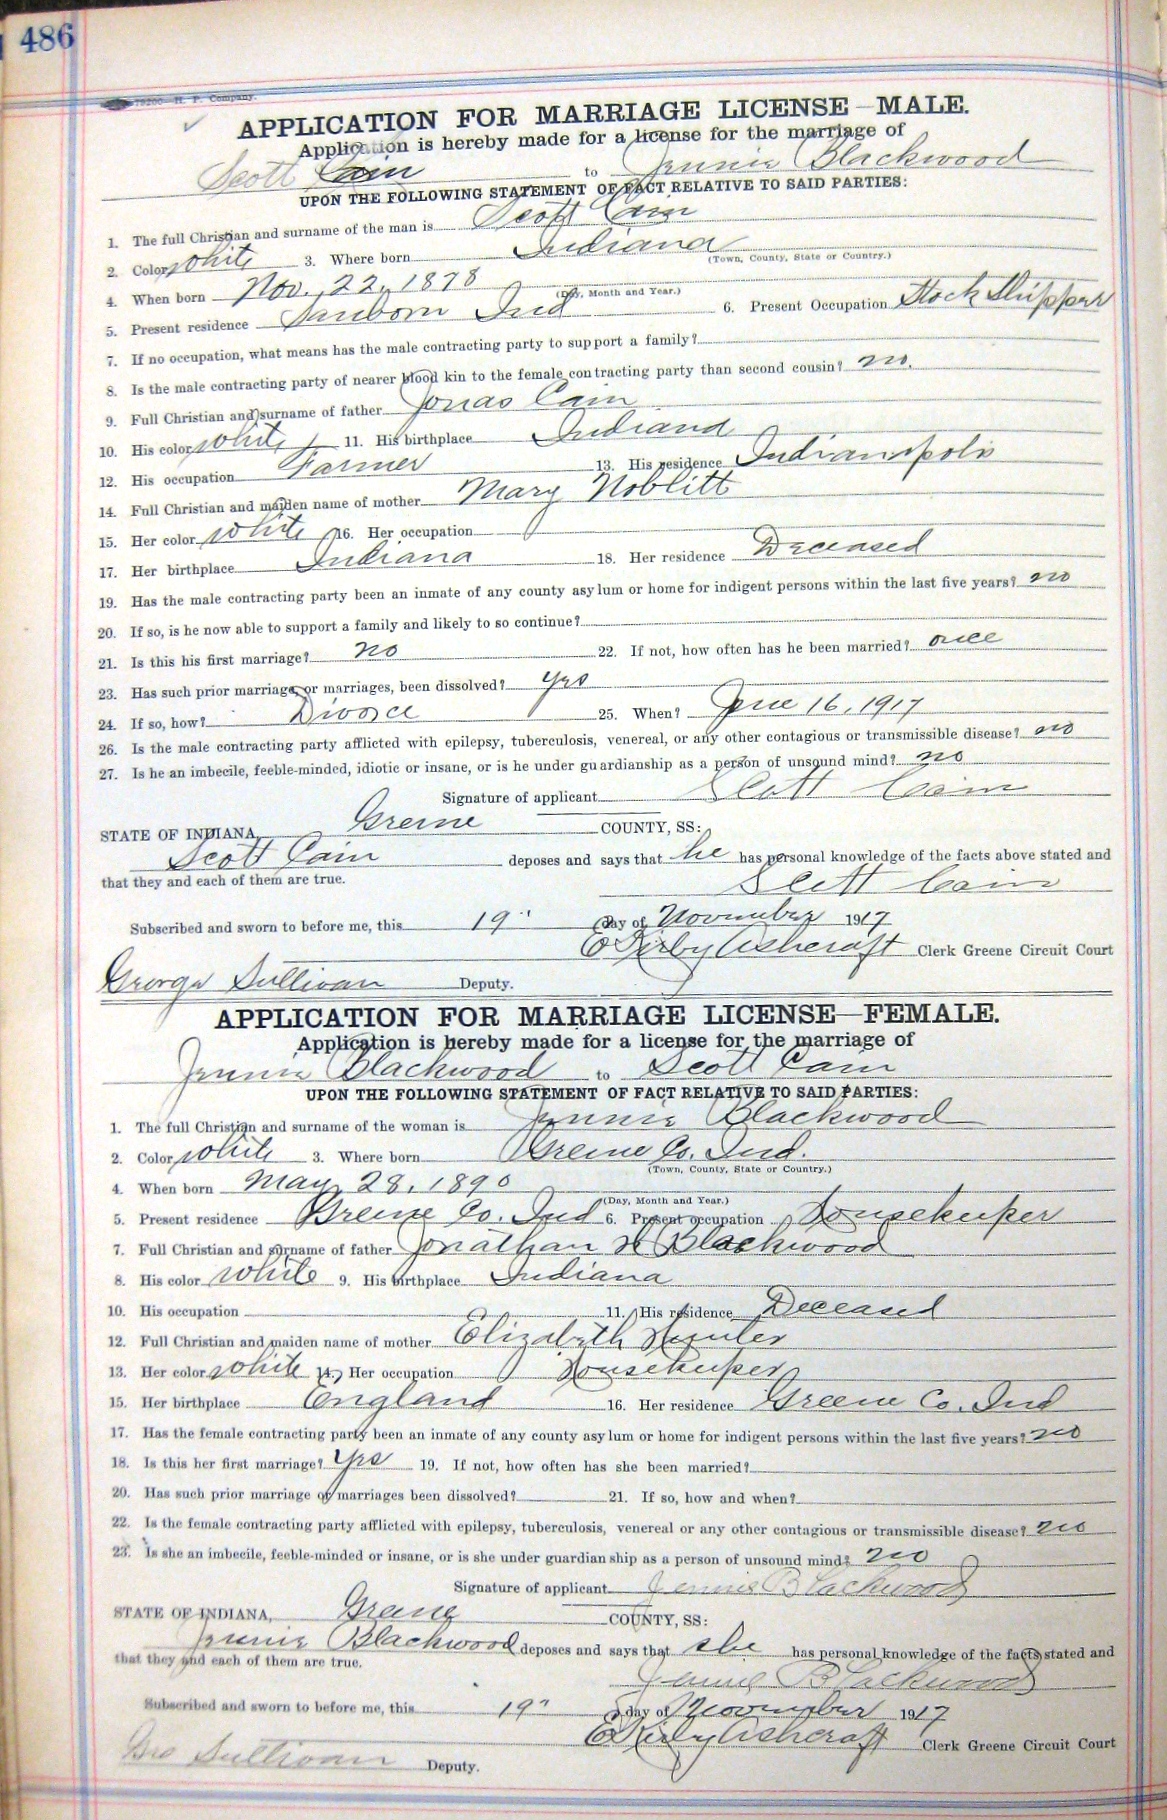 486
79200—H. P. Company.
APPLICATION FOR MARRIAGE LICENSE—MALE.
Application is hereby made for a license for the marriage of
Scott Cain to Jennie Blackwood
UPON THE FOLLOWING STATEMENT OF FACT RELATIVE TO SAID PARTIES:
1. The full Christian and surname of the man is Scott Cain
2. Color white 3. Where born Indiana
(Town, County, State or Country.)
4. When born Nov. 22, 1878
(Day, Month and Year.)
5. Present residence Sanborn Ind 6. Present Occupation Stock Shipper
7. If no occupation, what means has the male contracting party to support a family?
8. Is the male contracting party of nearer blood kin to the female contracting party than second cousin? no.
9. Full Christian and surname of father Jonas Cain
10. His color white 11. His birthplace Indiana
12. His occupation Farmer 13. His residence Indianapolis
14. Full Christian and maiden name of mother Mary Noblitt
15. Her color white 16. Her occupation
17. Her birthplace Indiana 18. Her residence Deceased
19. Has the male contracting party been an inmate of any county asylum or home for indigent persons within the last five years? no
20. If so, is he now able to support a family and likely to so continue?
21. Is this his first marriage? no 22. If not, how often has he been married? once
23. Has such prior marriage, or marriages, been dissolved? yes
24. If so, how? Divorce 25. When? June 16, 1917
26. Is the male contracting party afflicted with epilepsy, tuberculosis, venereal, or any other contagious or transmissible disease? no
27. Is he an imbecile, feeble-minded, idiotic or insane, or is he under guardianship as a person of unsound mind? no
Signature of applicant Scott Cain
STATE OF INDIANA, Greene COUNTY, SS:
Scott Cain deposes and says that he has personal knowledge of the facts above stated and
that they and each of them are true.
Scott Cain
Subscribed and sworn to before me, this 19" day of November 1917
E Kirby Ashcraft Clerk Greene Circuit Court
George Sullivan Deputy.
APPLICATION FOR MARRIAGE LICENSE—FEMALE.
Application is hereby made for a license for the marriage of
Jennie Blackwood to Scott Cain
UPON THE FOLLOWING STATEMENT OF FACT RELATIVE TO SAID PARTIES:
1. The full Christian and surname of the woman is Jennie Blackwood
2. Color white 3. Where born Greene Co. Ind.
(Town, County, State or Country.)
4. When born May 28, 1890
(Day, Month and Year.)
5. Present residence Greene Co. Ind 6. Present occupation Housekeeper
7. Full Christian and surname of father Jonathan H Blackwood
8. His color white 9. His birthplace Indiana
10. His occupation 11. His residence Deceased
12. Full Christian and maiden name of mother Elizabeth Hunter
13. Her color white 14. Her occupation Housekeeper
15. Her birthplace England 16. Her residence Greene Co. Ind
17. Has the female contracting party been an inmate of any county asylum or home for indigent persons within the last five years? no
18. Is this her first marriage? yes 19. If not, how often has she been married?
20. Has such prior marriage or marriages been dissolved? 21. If so, how and when?
22. Is the female contracting party afflicted with epilepsy, tuberculosis, venereal or any other contagious or transmissible disease? no
23. Is she an imbecile, feeble-minded or insane, or is she under guardianship as a person of unsound mind? no
Signature of applicant Jennie Blackwood
STATE OF INDIANA, Greene COUNTY, SS:
Jennie Blackwood deposes and says that she has personal knowledge of the facts stated and
that they and each of them are true.
Jennie Blackwood
Subscribed and sworn to before me, this 19" day of November 1917
E Kirby Ashcraft Clerk Greene Circuit Court
Geo Sullivan Deputy.